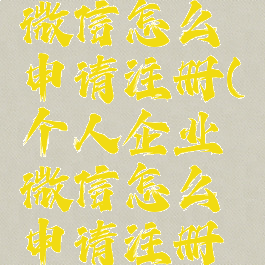 微信怎么
申请注册(
个人企业
微信怎么
申请注册